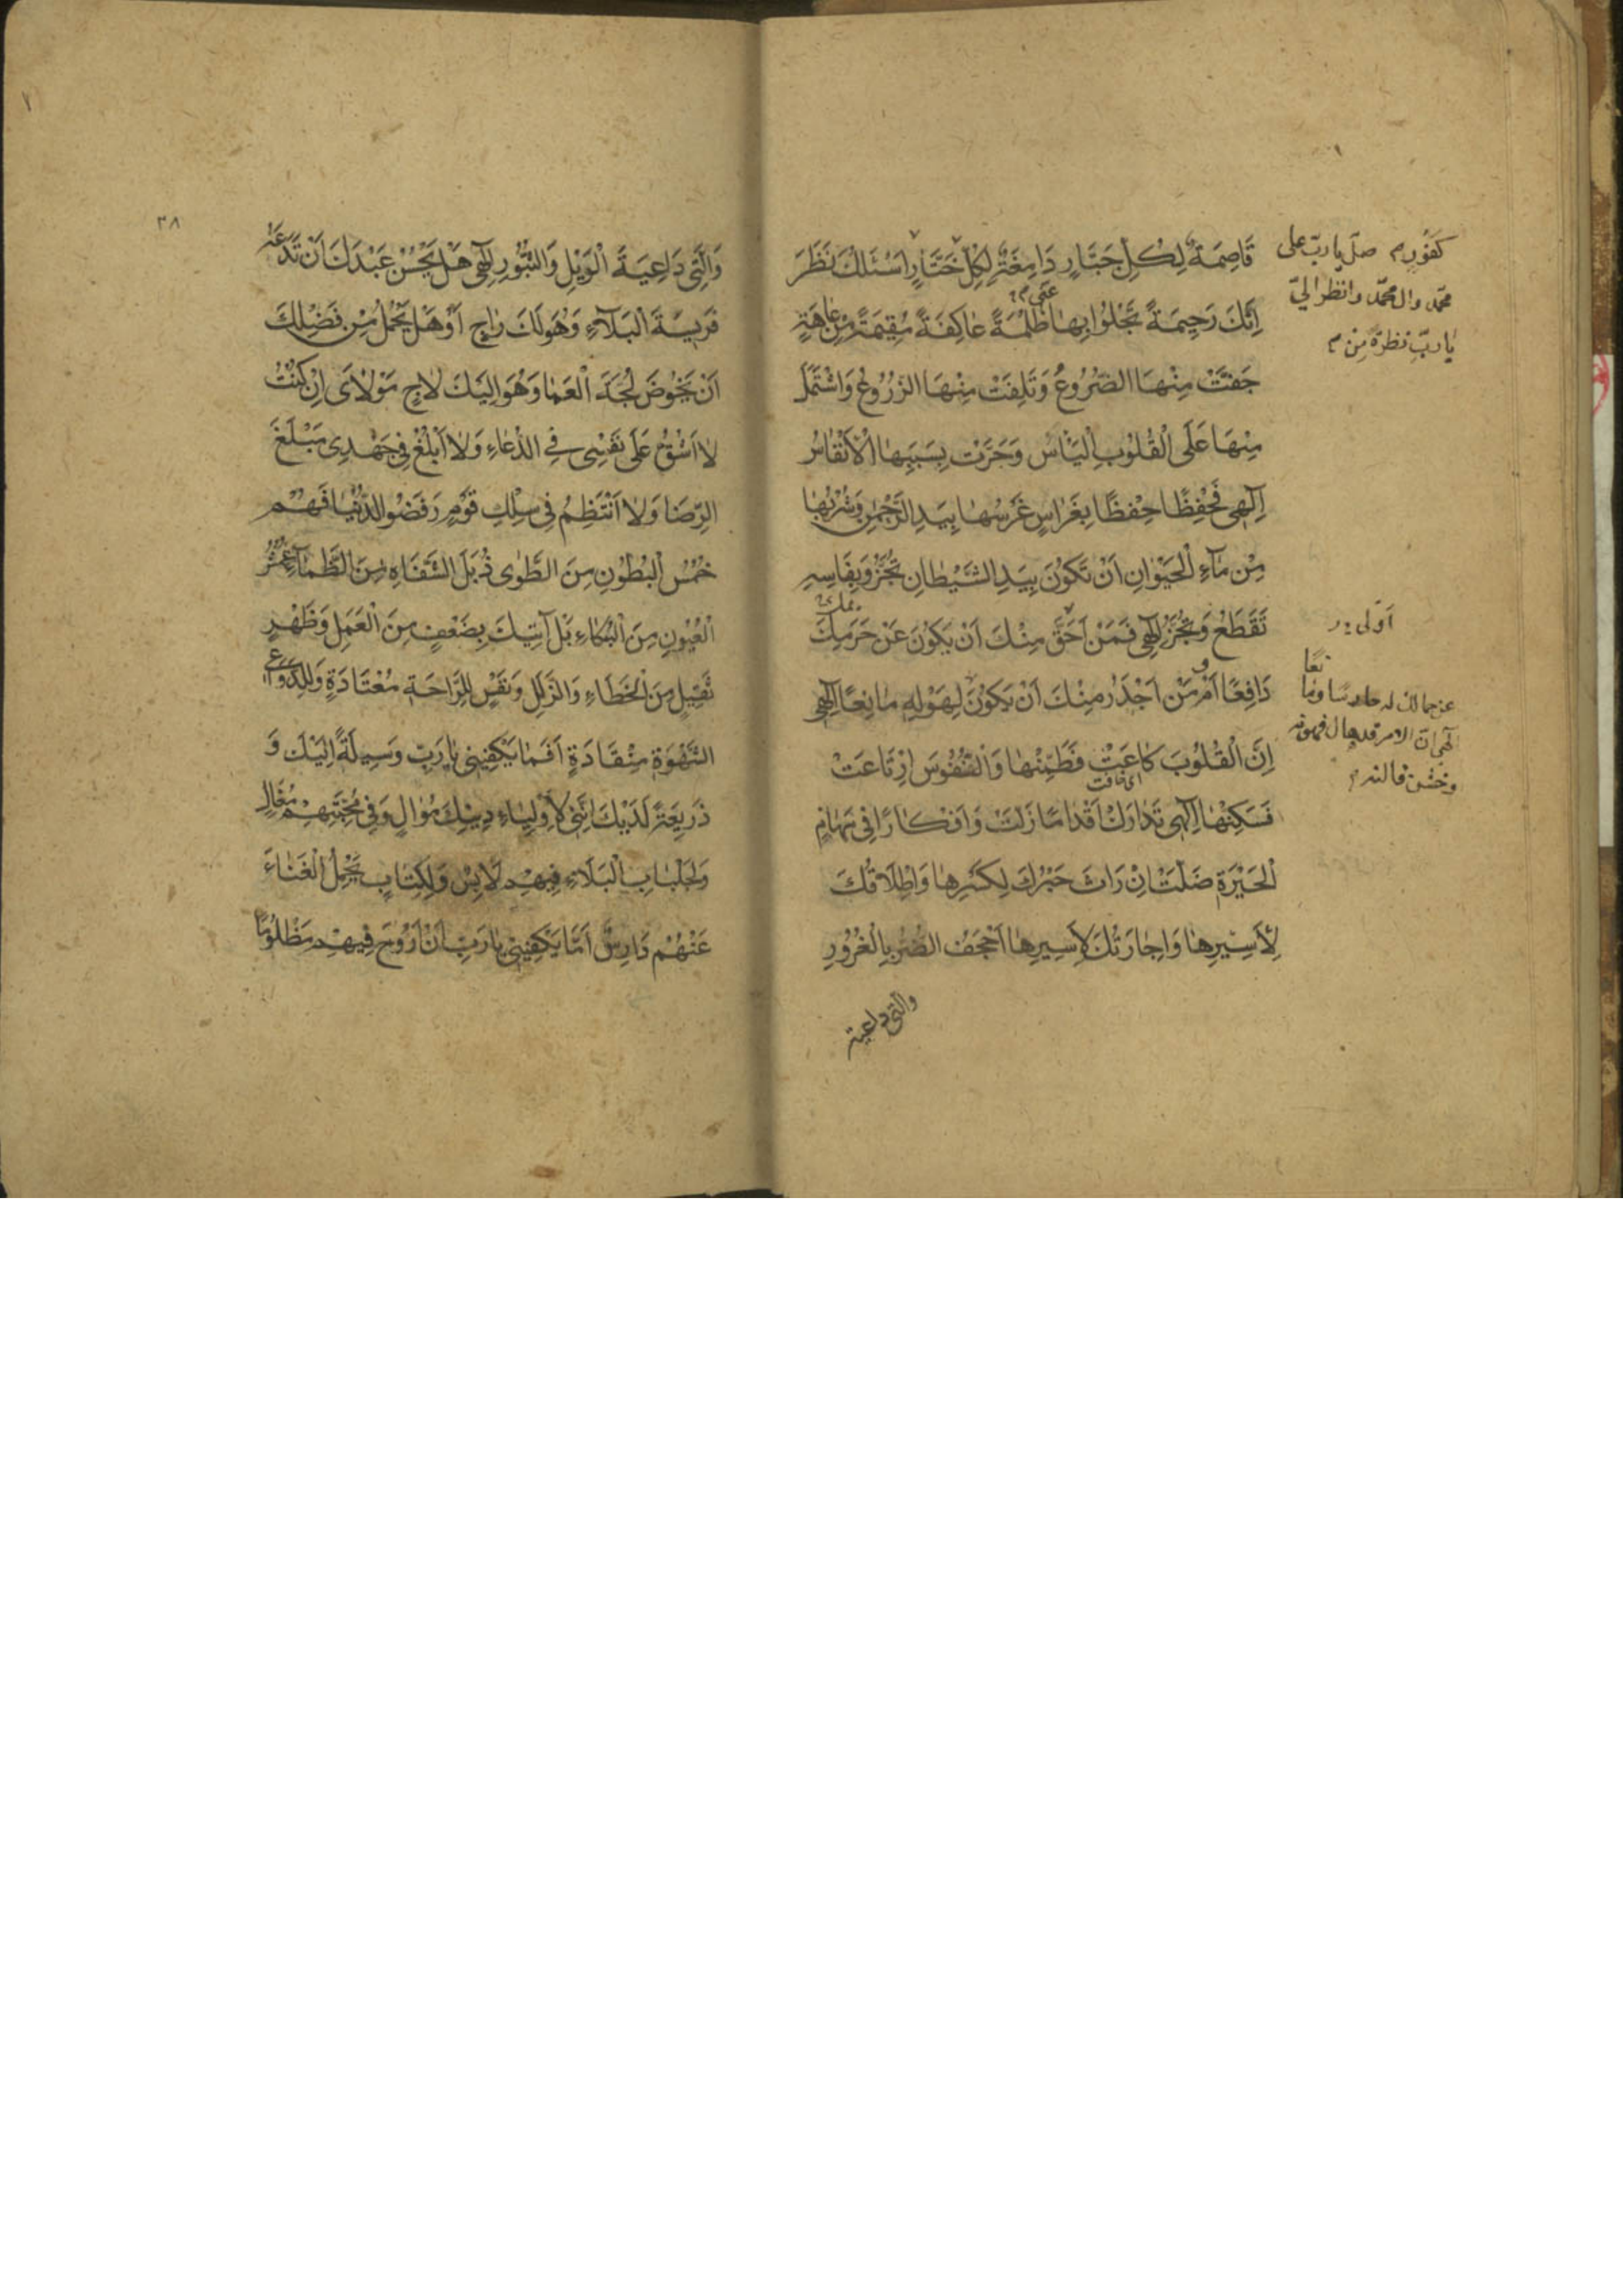 قَاصِمَةٌ لِكُلِّ جَبَّارٍ دَامِغَةٌ لِكُلِّ خَتَّارٍ اَسْئَلُكَ نَظَرَ
اِنَّكَ رَحِيمَةً تَجْلُوا بِهَا ظُلْمَةً عَاكِفَةً مُقِيمَةً مِنْ عَاهَةٍ
جَفَّتْ مِنْهَا الضُّرُوعُ وَتَلِفَتْ مِنْهَا الزُّرُوعُ وَاشْتَمَلَ
مِنْهَا عَلَى الْقُلُوبِ الْيَأْسُ وَجَرَتْ بِسَبَبِهَا الْاَنْفَاسُ
اِلٰهِي فَحِفْظًا حِفْظًا بِغَرَاسٍ غَرْسُهَا بِيَدِ الرَّحْمٰنِ وَشُرْبُهَا
مِنْ مَاءِ الْحَيَوٰانِ اَنْ تَكُونَ بِيَدِ الشَّيْطَانِ تُجَزُّ وَبِفَاسِهِ
تُقْطَعُ وَتُجَزُّ اِلٰهِي فَمَنْ اَحَقُّ مِنْكَ اَنْ يَكُونَ عَنْ حَرَمِكَ
دَافِعًا اَمْ مَنْ اَجْدَرُ مِنْكَ اَنْ يَكُونَ لِهَوْلِهِ مَانِعًا اِلٰهِي
اِنَّ الْقُلُوبَ كَاعَتْ فَطَمِّنْهَا وَالنُّفُوسَ ارْتَاعَتْ
فَسَكِّنْهَا اِلٰهِي تَدَارَكْ اَقْدَامًا زَلَّتْ وَاَفْكَارًا فِي مَهَامِهِ
الْحَيْرَةِ ضَلَّتْ اِنْ رَاَتْ جَبْرَكَ لِكَسْرِهَا وَاِطْلَاقَكَ
لِاَسِيرِهَا وَاِجَارَتَكَ لِاَسِيرِهَا اَجْحَفُ الضُّرُّ بِالْغُرُورِ
والتي داعية
كَفُورٍ صلّ يا ربّ على
محمّد وال محمّد وانظر اليّ
يا ربّ نظرة مِن
اَولى
وَالَّتِي دَاعِيَةَ الْوَيْلِ وَالثُّبُورِ اِلٰهِي هَلْ يَحْسُنْ عَبْدَكَ اَنْ تَدَعَهُ
فَرِيسَةَ الْبَلَاءِ وَهُوَ لَكَ رَاجٍ اَوْ هَلْ يَحْمُلُ مِنْ فَضْلِكَ
اَنْ يَخُوضَ لُجَّةَ الْعَمَا وَهُوَ اِلَيْكَ لَاجٍ مَوْلَايَ اِنْ كُنْتُ
لَا اَشُقُّ عَلَى نَفْسِي فِي الدُّعَاءِ وَلَا اَبْلُغُ فِي جَهْدِي مَبْلَغَ
الرِّضَا وَلَا اَنْتَظِمُ فِي سِلْكِ قَوْمٍ رَفَضُوا الدُّنْيَا فَهُمْ
خُمُسُ الْبُطُونِ مِنَ الطَّوٰى ذُبُلَ الشَّفَاهِ مِنَ الظَّمَآءِ عُمْشُ
الْعُيُونِ مِنَ الْبُكَاءِ بَلْ اَتَيْتُكَ بِضَعْفٍ مِنَ الْعَمَلِ وَظَهْرٍ
ثَقِيلٍ مِنَ الْخَطَاءِ وَالزَّلَلِ وَنَفْسٍ لِلرَّاحَةِ مُعْتَادَةٍ وَلِدَوَاعِي
الشَّهْوَةِ مُنْقَادَةٍ اَفَمَا يَكْفِينِي يَا رَبِّ وَسِيلَةً اِلَيْكَ وَ
ذَرِيعَةً لَدَيْكَ اِنَّنِي لِاَوْلِيَاءِ دِينِكَ مُوَالٍ وَفِي مُحَبَّتِهِمْ مُغَالٍ
وَلِجِلْبَابِ الْبَلَاءِ فِيهِمْ لَابِسٌ وَلِكِتَابٍ يَحْمِلُ الْعَنَاءَ
عَنْهُمْ دَارِسٌ اَمَا يَكْفِينِي يَا رَبِّ اَنْ اَرُوحَ فِيهِمْ مَظْلُومًا
٣٨